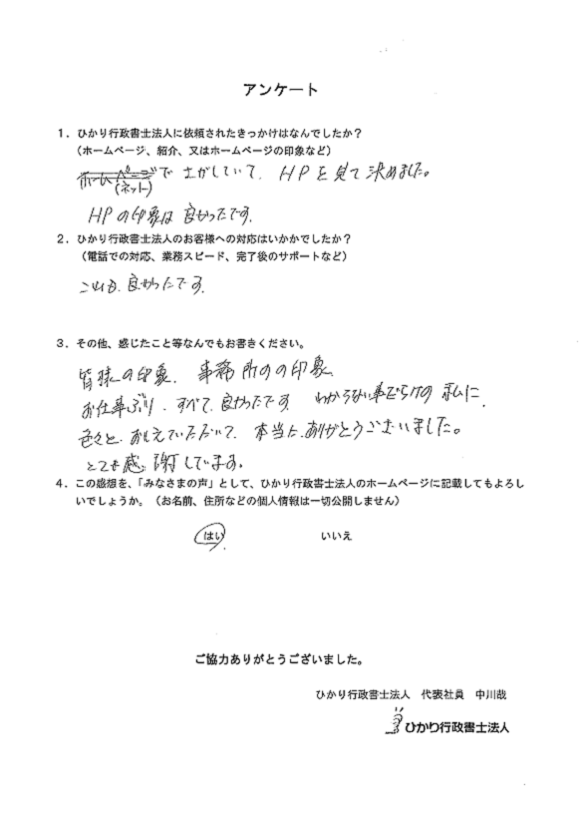 アンケート
1．ひかり行政書士法人に依頼されたきっかけはなんでしたか？
（ホームページ、紹介、又はホームページの印象など）
ホームページで さがしていて、HPを見て決めました。
（ネット）
HPの印象は良かったです。
2．ひかり行政書士法人のお客様への対応はいかがでしたか？
（電話での対応、業務スピード、完了後のサポートなど）
これも、良かったです。
3．その他、感じたこと等なんでもお書きください。
皆様の印象、事務所のの印象、
お仕事ぶり、すべて、良かったです。わからない事だらけの私に、
色々と、おしえていただいて、本当に、ありがとうございました。
とても感謝しています。
4．この感想を、「みなさまの声」として、ひかり行政書士法人のホームページに記載してもよろし
いでしょうか。（お名前、住所などの個人情報は一切公開しません）
はい いいえ
ご協力ありがとうございました。
ひかり行政書士法人 代表社員 中川哉
ひかり行政書士法人